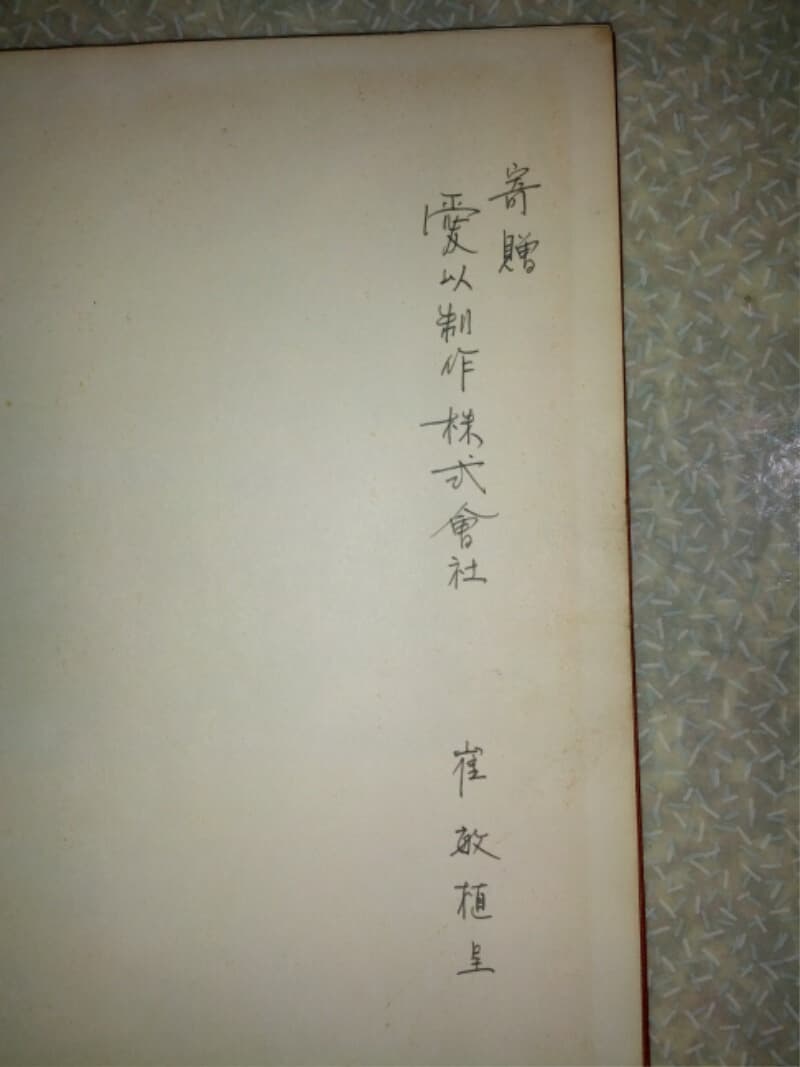 寄贈
愛以制作株式會社
崔敏植呈